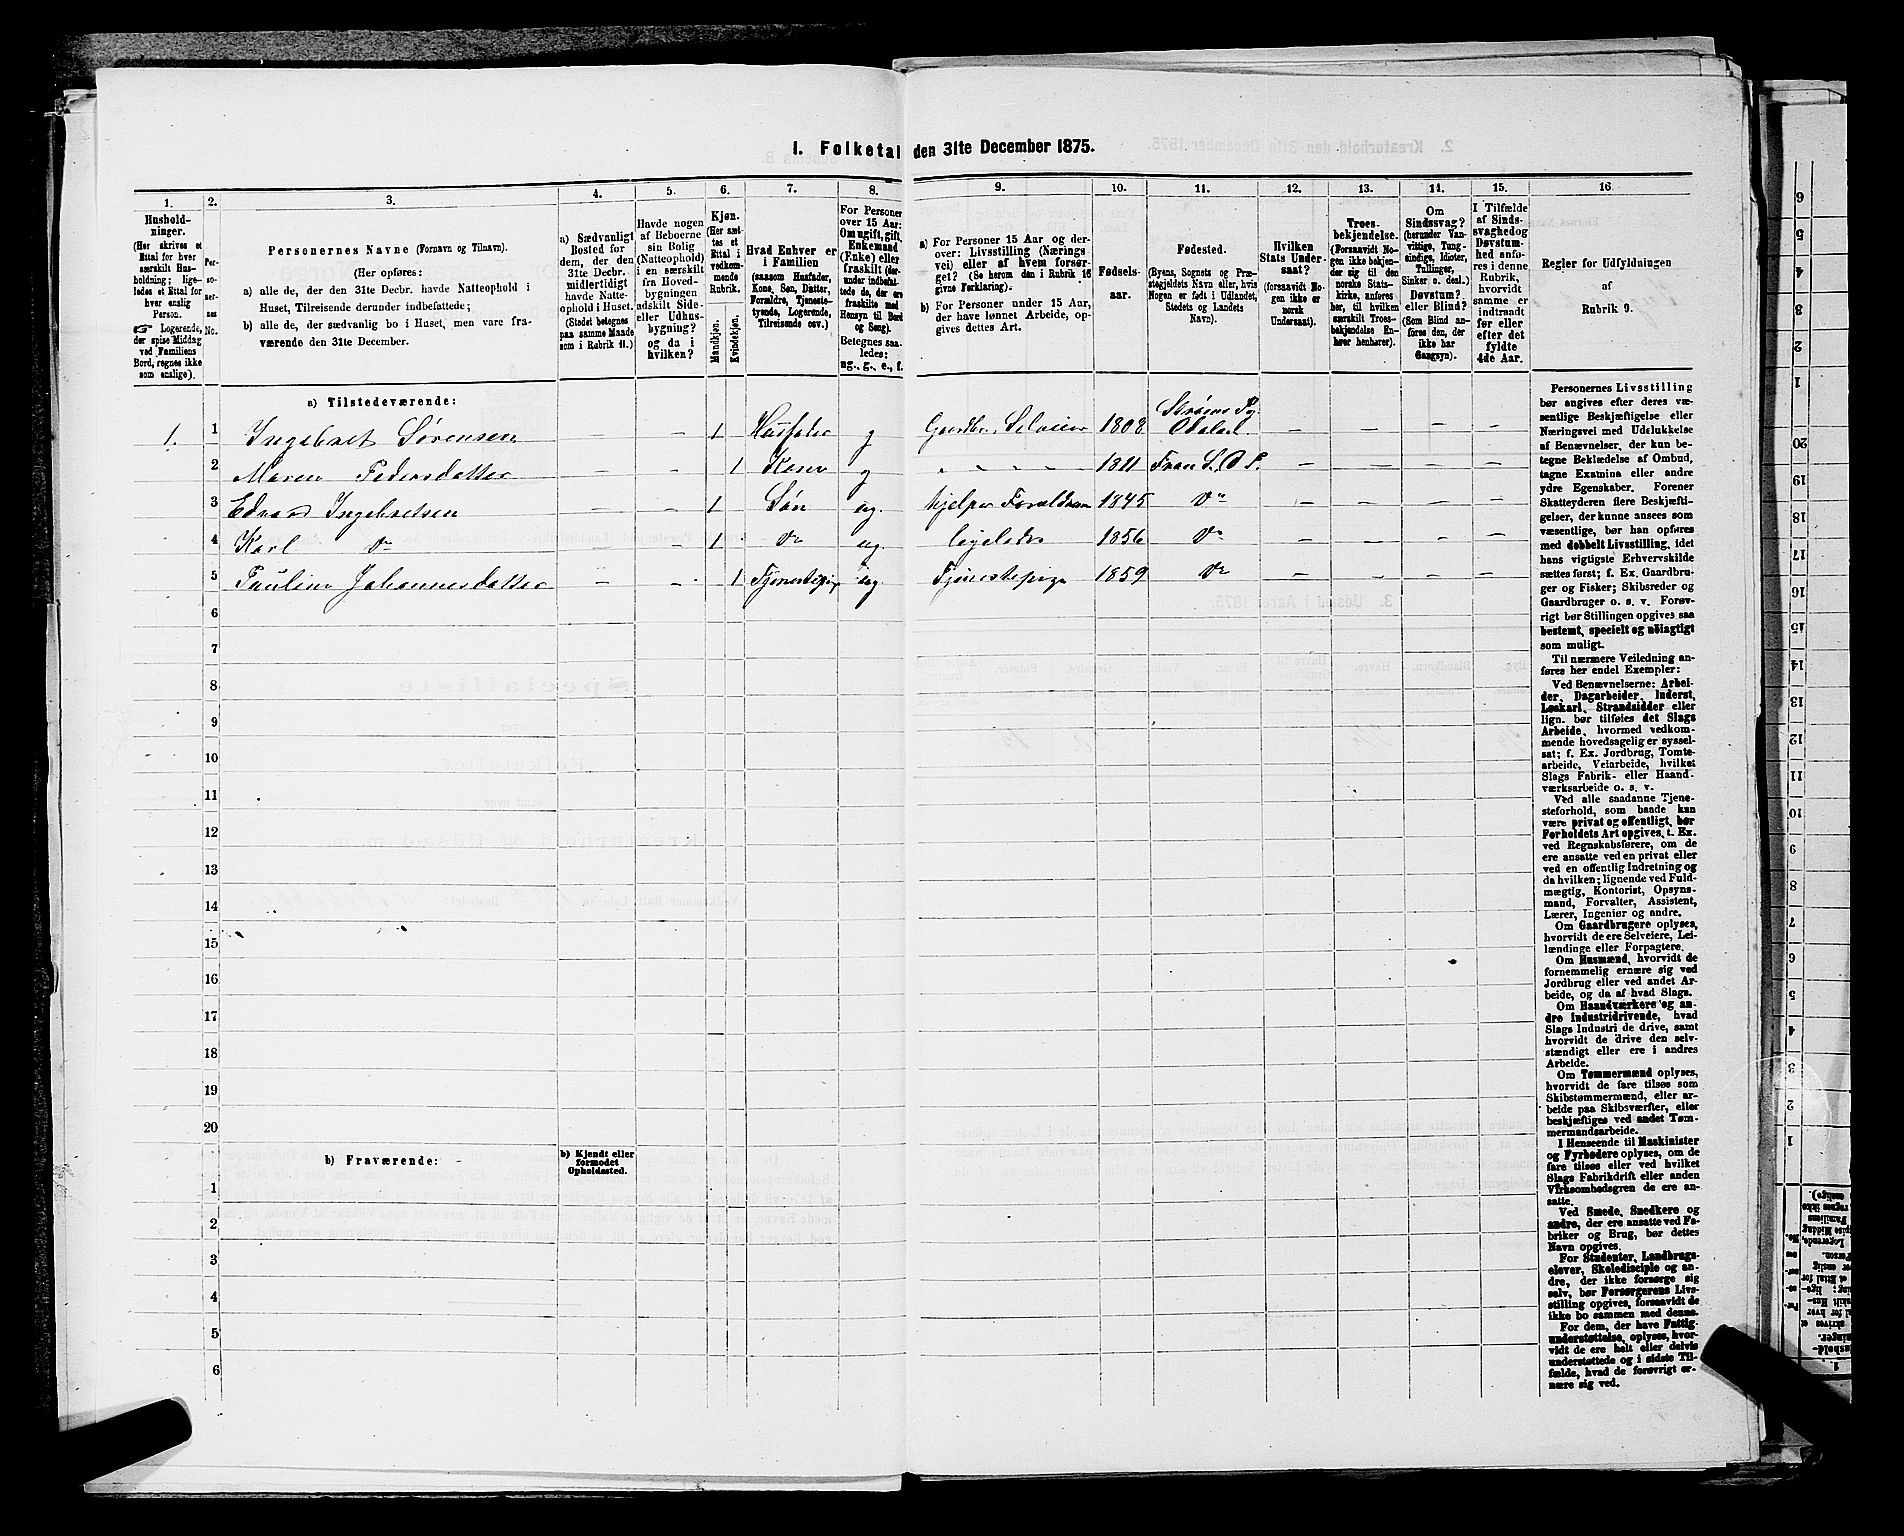 I. Folketal den 31te December 1875.
1.
Hushold-
ninger.
(Her skrives et
Ettal for hver
særskilt Hus-
holdning; lige-
ledes et Ettal for
hver enslig
Person.
☞ Logerende,
der spise Middag
ved Familiens
Bord, regnes ikke
som enslige).
2.
Per-
so-
ner-
nes
No.
3.
Personernes Navne (Fornavn og Tilnavn).
(Her opføres:
a) alle de, der den 31te Decbr. havde Natteophold i
Huset, Tilreisende derunder indbefattede;
b) alle de, der sædvanlig bo i Huset, men vare fra-
værende den 31te December.
4.
a) Sædvanligt
Bosted for
dem, der den
31te Decbr.
midlertidigt
havde Natte-
ophold i Huset.
(Stedet betegnes
paa samme Maade
som i Rubrik 11.)
5.
Havde nogen
af Beboerne
sin Bolig
(Natteophold)
i en særskilt
fra Hoved-
bygningen
adskilt Side
eller Udhus-
bygning?
og da i
hvilken?
6.
Kjøn.
(Her sæt-
tes et
Ettal i
vedkom-
mende
Rubrik.
Mandkjøn.
Kvindekjøn.
7.
Hvad Enhver er
i Familien
(saasom Husfader,
Kone, Søn, Datter,
Forældre, Tjeneste-
tyende, Logerende,
Tilreisende osv.)
8.
For Personer
over 15 Aar:
Om ugift, gift,
Enkemand
(Enke) eller
fraskilt (der-
under indbefat-
tede de, der ere
fraskilte med
Hensyn til Bord
og Seng).
Betegnes saa-
ledes:
ug., g., e., f.
9.
a) For Personer 15 Aar og der-
over: Livsstilling (Nærings
vei) eller af hvem forsør-
get? (Se herom den i Rubrik 16
givne Forklaring).
b) For Personer under 15 Aar,
der have lønnet Arbeide, op-
gives dettes Art.
10.
Fødsels-
aar.
11.
Fødested.
(Byens, Sognets og Præ-
stegjeldets Navn eller, hvis
Nogen er født i Udlandet,
Stedets og Landets
Navn).
12.
Hvilken
Stats Under-
saat?
(forsaavidt No-
gen ikke er
norsk
Undersaat).
13.
Troes-
bekjendelse.
(Forsaavidt No-
gen ikke bekjen-
der sig til den
norske Stats-
kirke, anføres
her, til hvilken
særskilt Troes-
bekjendelse En-
hver henhører).
14.
Om
Sindssvag?
(herunder Van-
vittige, Tung-
sindige, Idioter,
Tullinger,
Sinker o. desl.)
Døvstum?
eller Blind?
(Som Blind an-
føres den, der
ikke har
Gangsyn).
15.
I Tilfælde
af Sinds-
svaghed og
Døvstum-
hed anføres
i denne
Rubrik,
hvorvidt
samme er
indtraadt
før eller
efter det
fyldte
4de Aar.
16.
Regler for Udfyldningen
af
Rubrik 9.
a) Tilstedeværende:
1. 1 Ingebret Sørensen – – 1 Husfader g Gaardbr. Selveier 1808 Strøms Sg. Odalen – – – –
2 Maren Pedersdatter – – 1 Kone g 1811 – – – –
3 Edvard Ingebretsen – – 1 Søn ug. hjelper Forældrene 1845 do – – – –
4 Karl do – – 1 do ug. ligeledes 1856 do – – – –
5 Pauline Johannesdatter – – 1 Tjenestepige ug Tjenestepige 1859 do – – – –
6
7
8
9
10
11
12
13
14
15
16
17
18
19
20
b) Fraværende:
b) Kjendt eller
formodet
Opholdssted.
1
2
3
4
5
6
Personernes Livsstilling
bør angives efter deres væ-
sentlige Beskjæftigelse eller
Næringsvei med Udelukkelse
af Benævnelser, der kun be-
tegne Beklædelse af Ombud,
tagne Examina eller andre
ydre Egenskaber. Forener
Skatteyderen flere Beskjæfti-
gelser, der kunne ansees som
væsentlige, bør han opføres
med dobbelt Livsstilling, idet
hans vigtigste Erhvervskilde
sættes først; f. Ex. Gaardbru-
ger og Fisker; Skibsreder og
Gaardbruger o. s. v. Forøv-
rigt bør Stillingen opgives saa
bestemt, specielt og nöiagtigt
som muligt.
Til nærmere Veiledning an-
føres her endel Exempler:
Ved Benævnelserne: Arbei-
der, Dagarbeider, Inderst,
Løskarl, Strandsidder eller
lign. bør tilføies det Slags
Arbeide, hvormed vedkom-
mende hovedsagelig er syssel-
sat; f. Ex. Jordbrug, Tomte-
arbeide, Veiarbeide, hvilket
Slags Fabrik- eller Haand-
værksarbeide o. s. v.
Ved alle saadanne Tjene-
steforhold, som baade kan
være privat og offentligt, bør
Forholdets Art opgives, t. Ex.
ved Regnskabsførere, om de
ere ansatte ved en privat eller
ved en offentlig Indretning og
da hvilken; lignende ved Fuld-
mægtig, Kontorist, Opsyns-
mand, Forvalter, Assistent,
Lærer, Ingeniør og andre.
Om Gaardbrugere oplyses,
hvorvidt de ere Selveiere, Lei-
lændinge eller Forpagtere.
Om Husmænd, hvorvidt de
fornemmelig ernære sig ved
Jordbrug eller ved andet Ar-
beide, og da af hvad Slags.
Om Haandværkere og an-
dre Industridrivende, hvad
Slags Industri de drive, samt
hvorvidt de drive den selv-
stændigt eller ere i andres
Arbeide.
Om Tømmermænd oplyses,
hvorvidt de fare tilsøs som
Skibstømmermænd, eller ar-
beide paa Skibsværfter, eller
beskjæftiges ved andet Tøm-
mermandsarbeide.
I Henseende til Maskinister
og Fyrbødere oplyses, om de
fare tilsøs eller ved hvilket
Slags Fabrikdrift eller anden
Virksomhedsgren de ere an-
satte.
Ved Smede, Snedkere og
andre, der ere ansatte ved Fa-
briker og Brug, bør dettes
Navn opgives.
For Studenter, Landbrugs-
elever, Skoledisciple og an-
dre, der ikke forsørge sig
selv, bør Forsørgerens Livs-
stilling opgives, forsaavidt de
ikke bo sammen med denne.
For dem, der have Fattig-
understøttelse, oplyses, hvor-
vidt de ere helt eller delvis
understøttede og i sidste Til-
fælde, hvad de forøvrigt er-
nære sig ved.